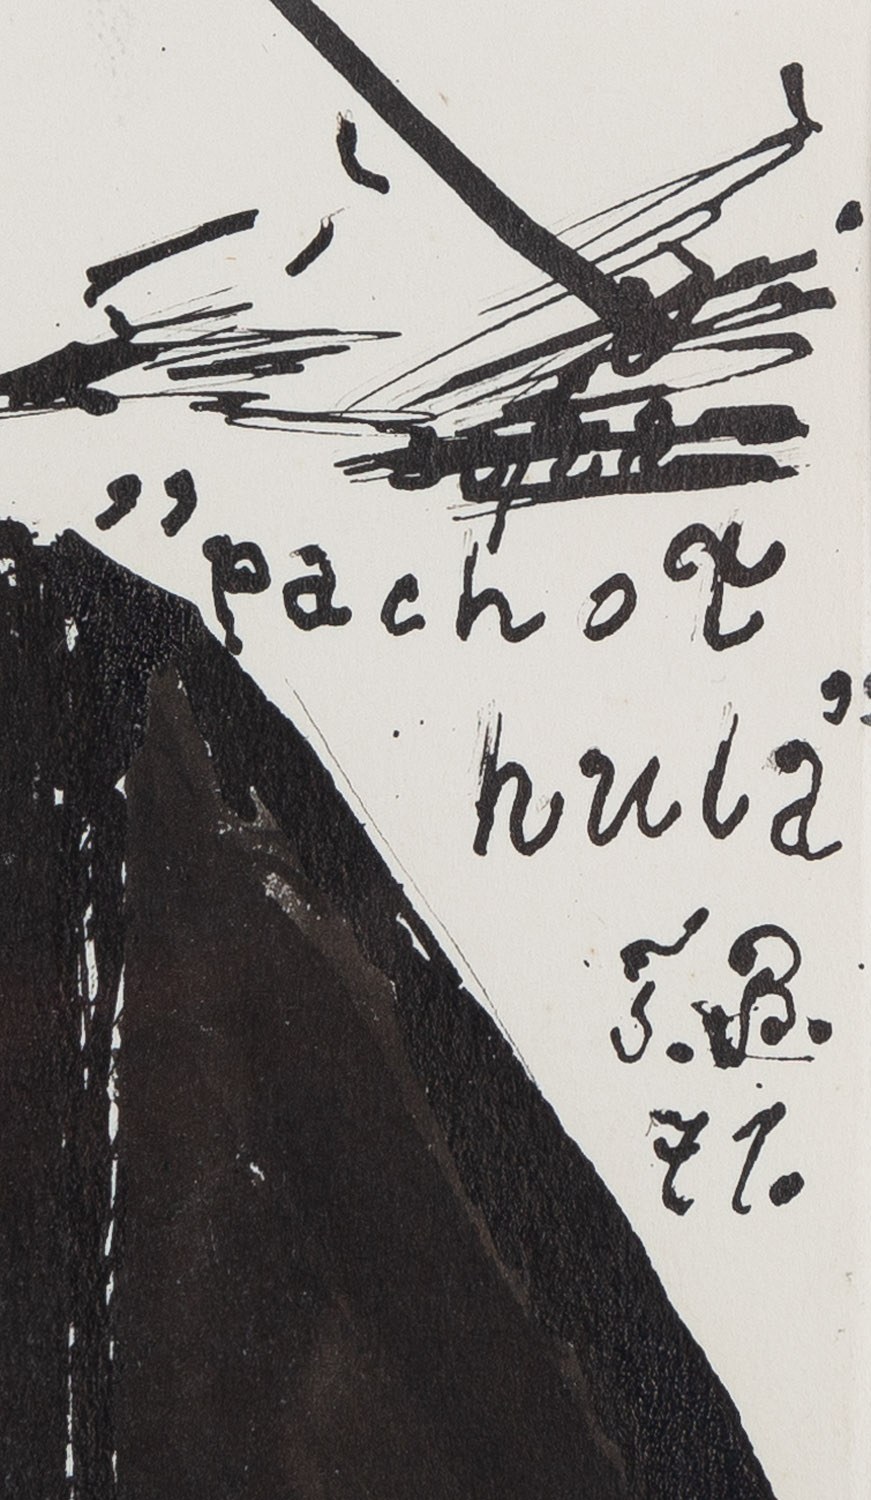 „pachoł
hula”
T.B.
71.